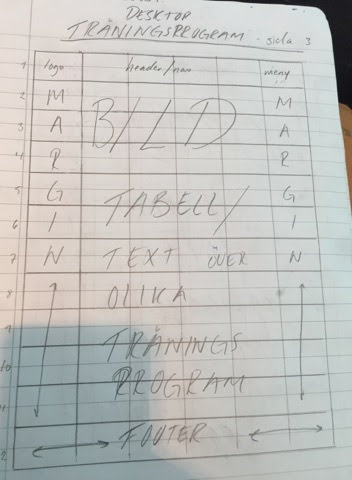 DESKTOP
TRÄNINGSPROGRAM - sida 3
1 logo header/nav meny
2 M M
3 A BILD A
4 R R
5 G TABELL/ G
6 I I
7 N TEXT ÖVER N
8 OLIKA
9 TRÄNINGS
10 PROGRAM
11
12 FOOTER